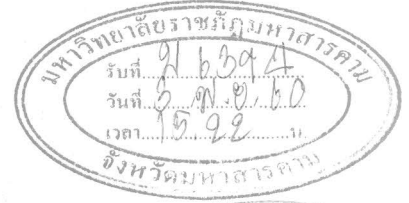 มหาวิทยาลัยราชภัฏมหาสารคาม
รับที่
วันที่ 3 พ.ย. 60
เวลา 15.22 น.
จังหวัดมหาสารคาม